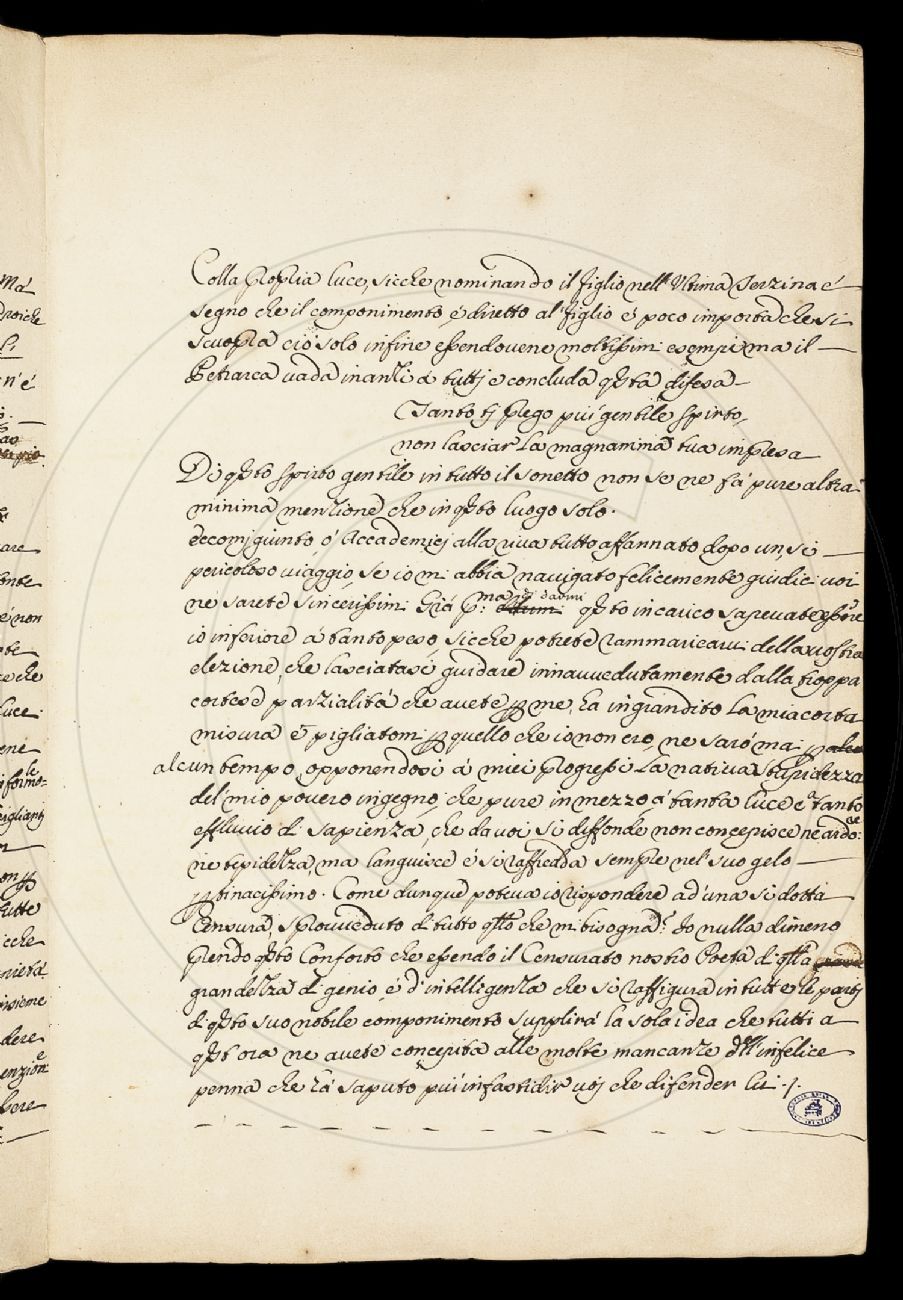 Colla propria luce, sicche nominando il figlio nell' Ultima Terzina é
segno che il componimento é diretto al figlio é poco importa che si
scuopra ció solo in fine essendovene moltissimi esempi ma il
Petrarca vada inanzi á tuttj e concluda qsta difesa
Tanto tj prego piú gentile spirto,
non lasciar La magnanima tua impresa
Di qsto spirto gentile in tutto il sonetto non se ne fá pure altra
minima menzione che in qsto luogo solo.
Eccomj giunto, ó Accademicj alla riva tutto affannato dopo un, si
pericoloso viaggio, se io mi abbia navigato felicemente giudici voi
ne sarete sincerissimi. Giá pma di darmi qsto incarico sapevate essere
io inferiore á tanto peso, sicche potrete rammaricarvi della vostra
elezione, che lasciatasi guidare innavvedutamente dalla troppa
cortese parzialitá che avete per me, ha ingrandito La mia corta
misura é pigliatomi per quello che io non ero, ne saró mai per
alcun tempo, opponendosi á miei progressi La nativa stupidezza
del mio povero ingegno, che pure in mezzo á tanta luce é á tanto
effluvio di sapienza, che da voi si diffonde non concepisce ne ardore
ne tepidezza, ma languisce é si raffredda sempre nel suo gelo
pertinacissimo. Come dunque poteva io rispondere ad' una si dotta
Censura, sprovveduto di tutto qllo che mi bisogna? Io nulla dimeno
prendo qsto Conforto che essendo il Censurato nostro Poeta di qlla
grandezza di genio, é d' intelligenza che si raffigura in tutte le partj
di qsto suo nobile componimento supplirá la sola idea che tutti a
qst' ora ne avete concepita alle molte mancanze dell' infelice
penna che há saputo piú infastidir voj che difender lui